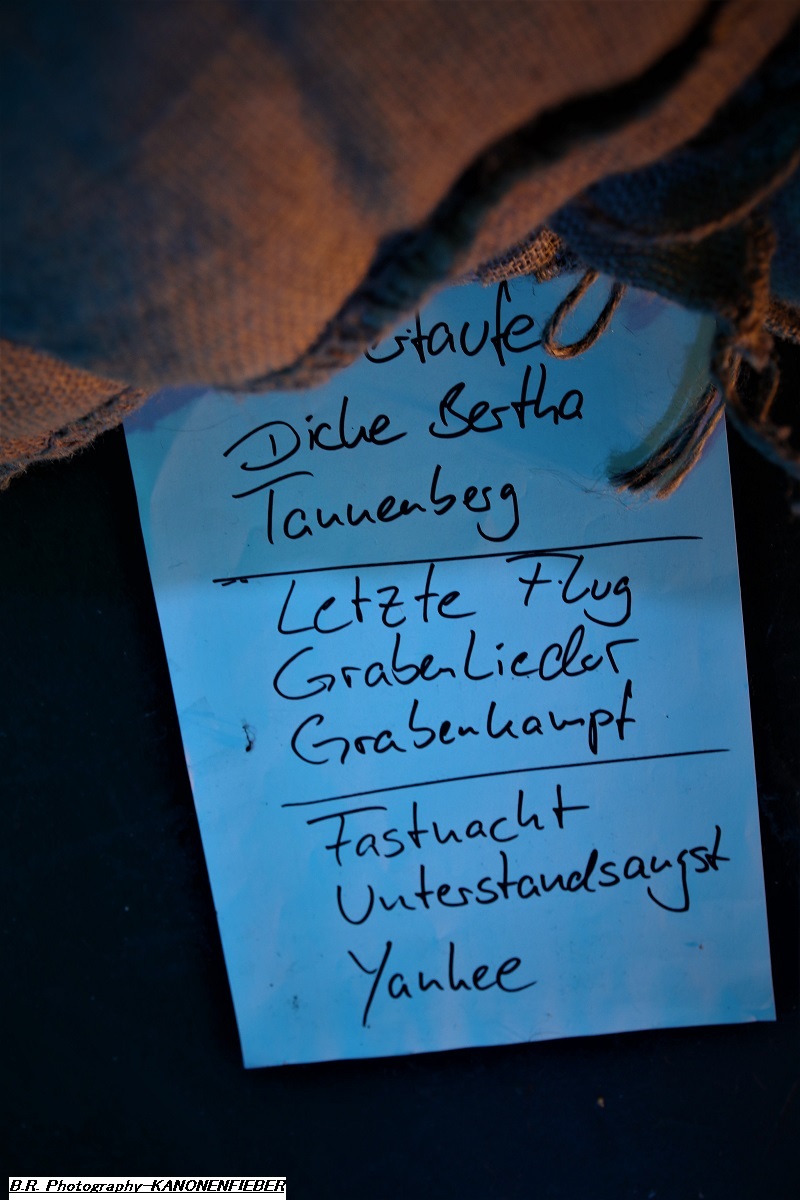 taufe
Dicke Bertha
Tannenberg
Letzte Flug
GrabenLieder
Grabenkampf
Fastnacht
Unterstandsangst
Yankee
B.R. Photography-KANONENFIEBER